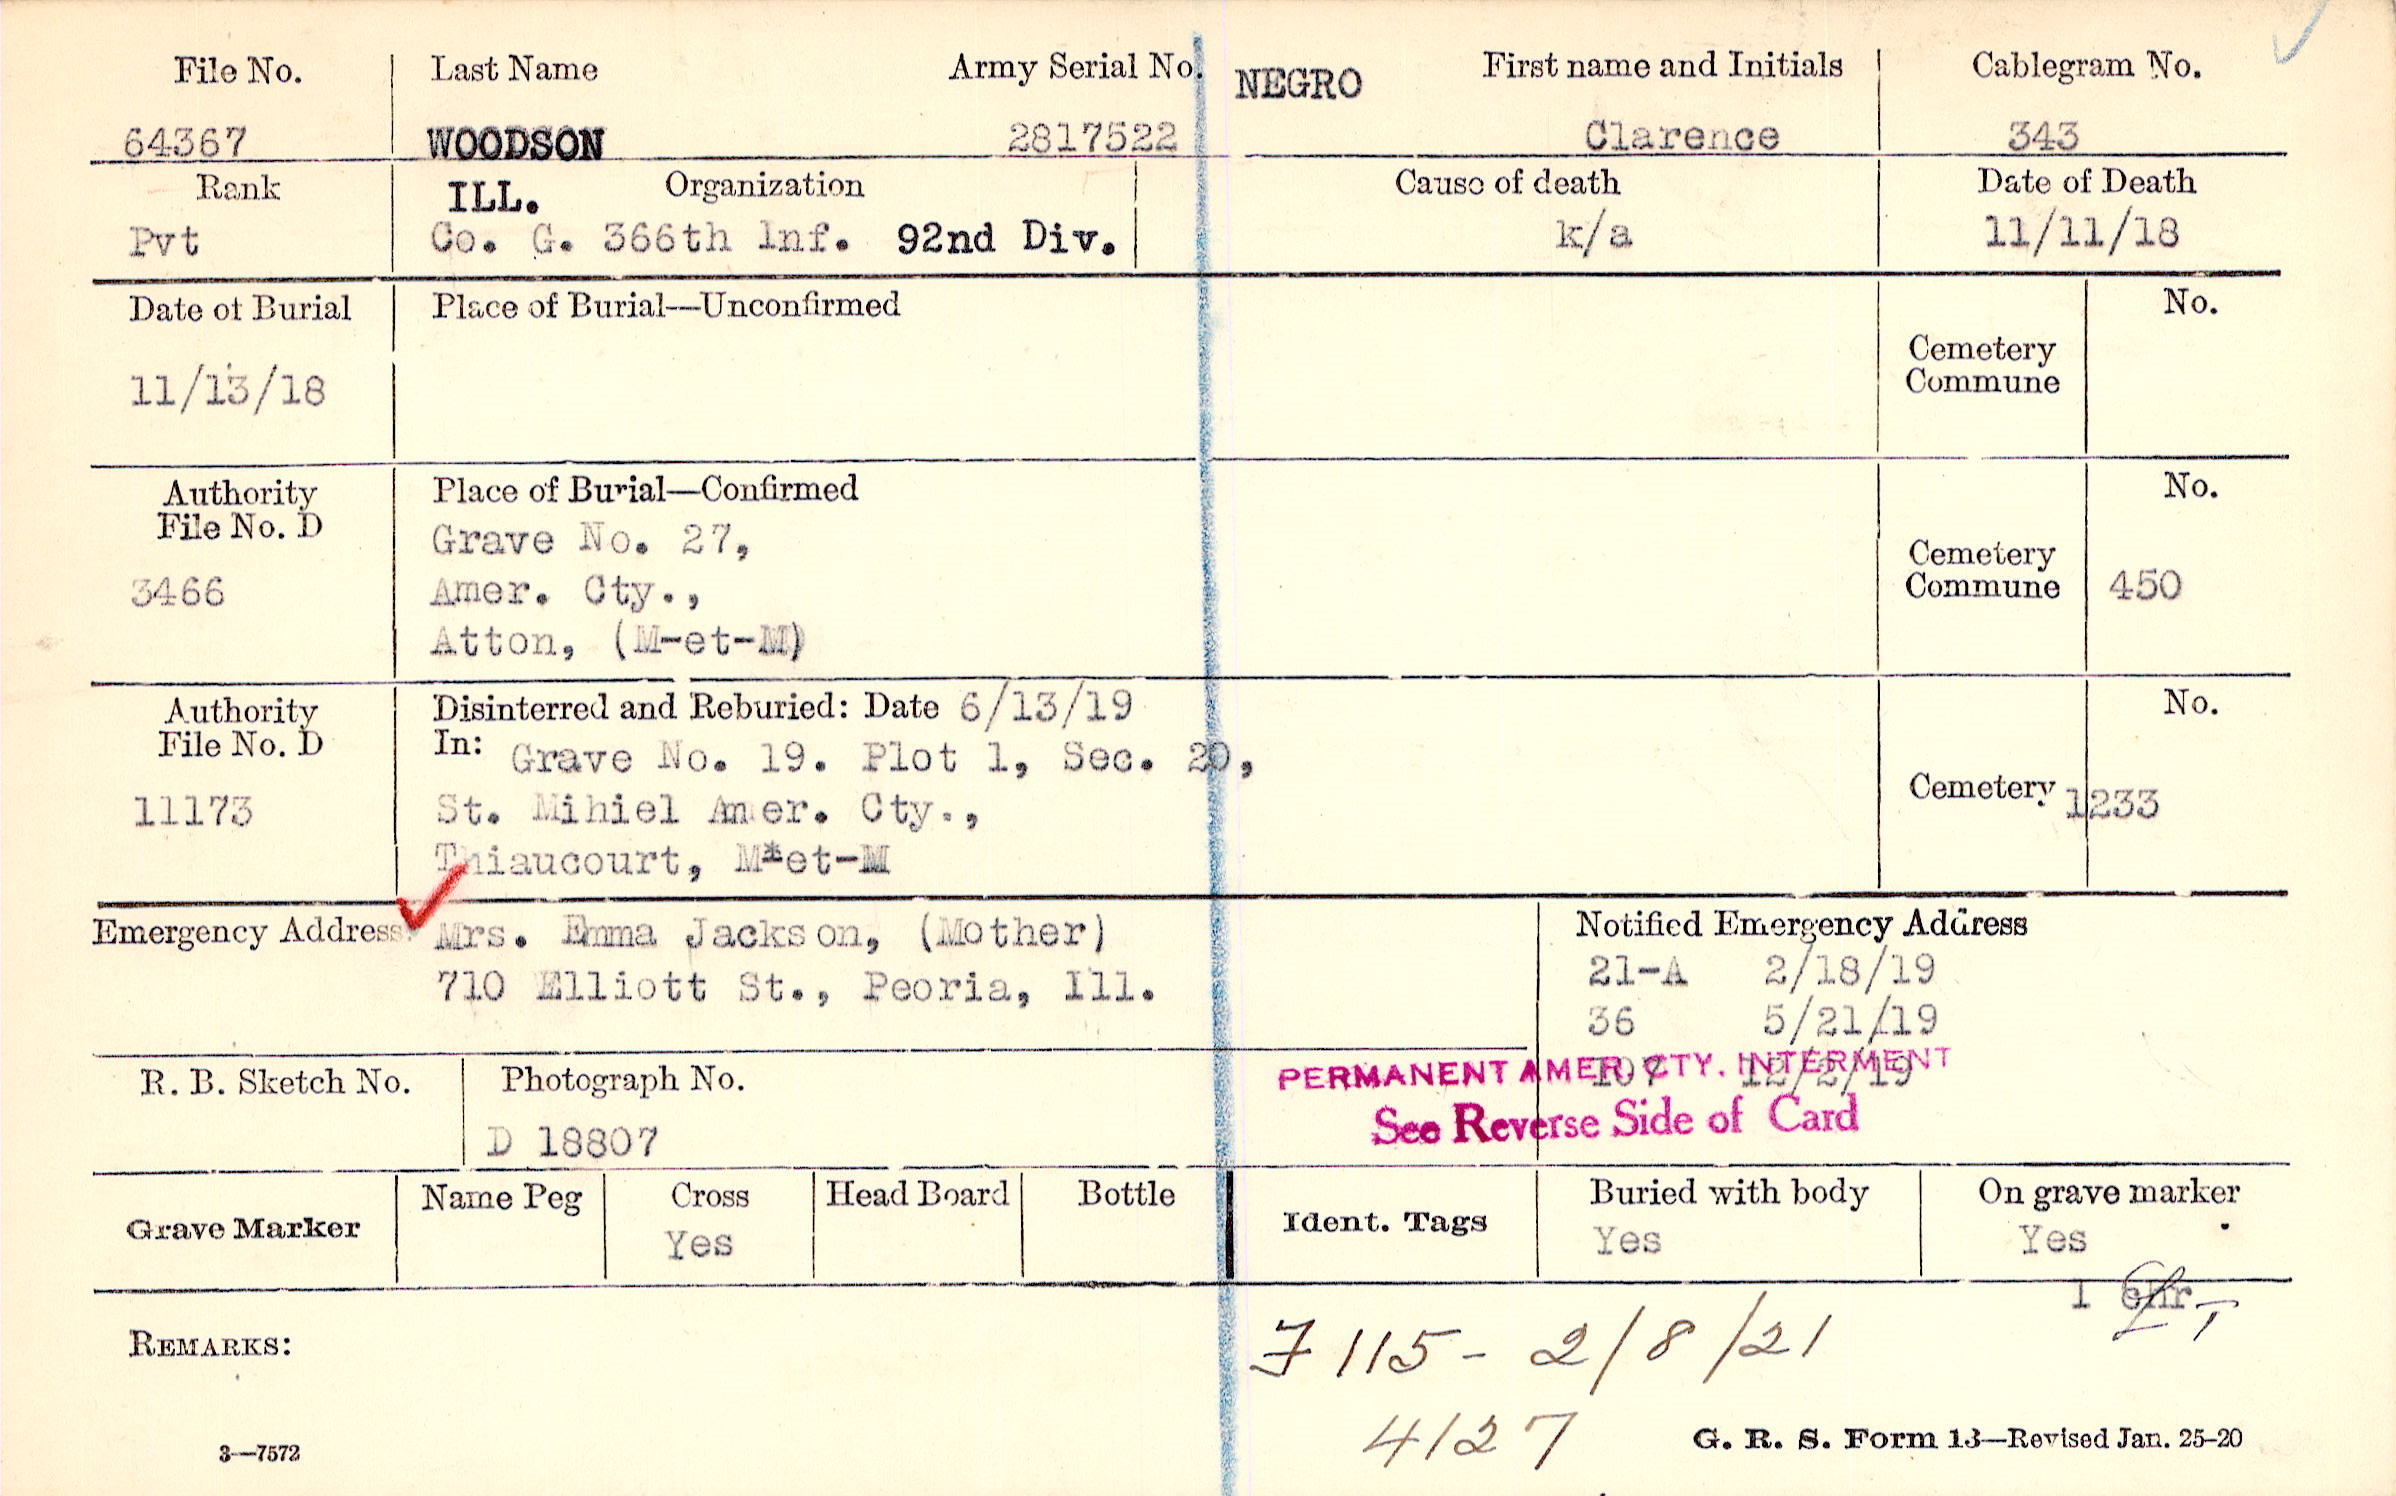 File No. Last Name Army Serial No. NEGRO First name and Initials Cablegram No.
64367 WOODSON 2817522 Clarence 343
Rank ILL. Organization Cause of death Date of Death
Pvt Co. G. 366th Inf. 92nd Div. k/a 11/11/18
Date of Burial Place of Burial—Unconfirmed No.
11/13/18
Cemetery
Commune
Authority Place of Burial—Confirmed No.
File No. D Grave No. 27,
3466 Amer. Cty.,
Atton, (M-et-M)
Cemetery
Commune 450
Authority Disinterred and Reburied: Date 6/13/19 No.
File No. D In: Grave No. 19. Plot 1, Sec. 20,
11173 St. Mihiel Amer. Cty., Cemetery 1233
Thiaucourt, M*et-M
Emergency Address: Mrs. Emma Jackson, (Mother) Notified Emergency Address
710 Elliott St., Peoria, Ill. 21-A 2/18/19
36 5/21/19
107 12/2/19
PERMANENT AMER. CTY. INTERMENT
See Reverse Side of Card
R. B. Sketch No. Photograph No.
D 18807
Grave Marker Name Peg Cross Head Board Bottle Ident. Tags Buried with body On grave marker
Yes Yes Yes
REMARKS:
F 115- 2/8/21
4127
3—7572 G. R. S. Form 13—Revised Jan. 25-20